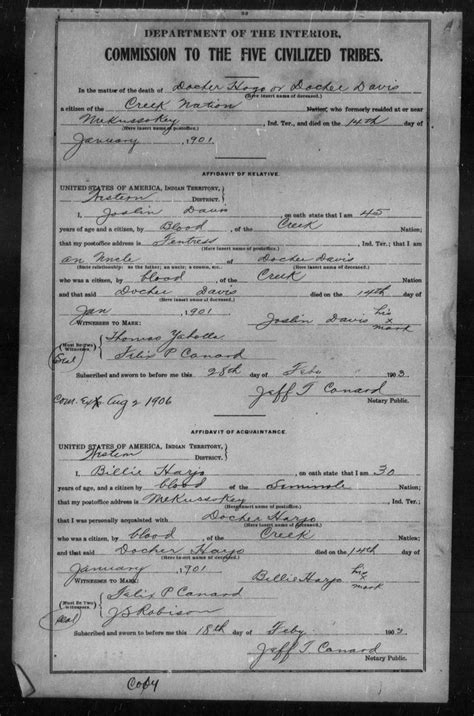 DEPARTMENT OF THE INTERIOR,
COMMISSION TO THE FIVE CIVILIZED TRIBES.
In the matter of the death of Docher Hogo or Docher Davis
(Here insert name of deceased.)
a citizen of the Creek Nation Nation, who formerly resided at or near
Mekussokey, Ind. Ter., and died on the 14th day of
(Here insert name of postoffice.)
January, 1901.
AFFIDAVIT OF RELATIVE.
UNITED STATES OF AMERICA, INDIAN TERRITORY,
Western DISTRICT.
I, Joslin Davis, on oath state that I am 45
years of age and a citizen, by Blood, of the Creek Nation;
that my postoffice address is Fentress, Ind. Ter.; that I am
(Here insert name of postoffice.)
an Uncle of Docher Davis
(State relationship: as the father; an uncle; a cousin, etc.) (Here insert name of deceased.)
who was a citizen, by blood, of the Creek Nation;
and that said Docher Davis died on the 14th day of
(Here insert name of deceased.)
Jan, 1901
Joslin Davis his x mark
WITNESSES TO MARK:
Thomas Yahola
(Must Be Two Witnesses.)
Felix P Canard
(Seal)
Subscribed and sworn to before me this 28th day of Feby 1903
Jeff T. Canard
Notary Public.
Com. Ex. Aug 2 1906
AFFIDAVIT OF ACQUAINTANCE.
UNITED STATES OF AMERICA, INDIAN TERRITORY,
Western DISTRICT.
I, Billie Harjo, on oath state that I am 30
years of age, and a citizen by blood of the Seminole Nation;
that my postoffice address is Mekussokey, Ind. Ter.;
(Here insert name of postoffice.)
that I was personally acquainted with Docher Harjo
(Here insert name of deceased.)
who was a citizen, by blood, of the Creek Nation;
and that said Docher Harjo died on the 14th day of
(Here insert name of deceased.)
January, 1901
Billie Harjo his x mark
WITNESSES TO MARK:
Felix P Canard
(Must Be Two Witnesses.)
J S Robison
(Seal)
Subscribed and sworn to before me this 18th day of Feby 1903
Jeff T. Canard
Notary Public.
Copy